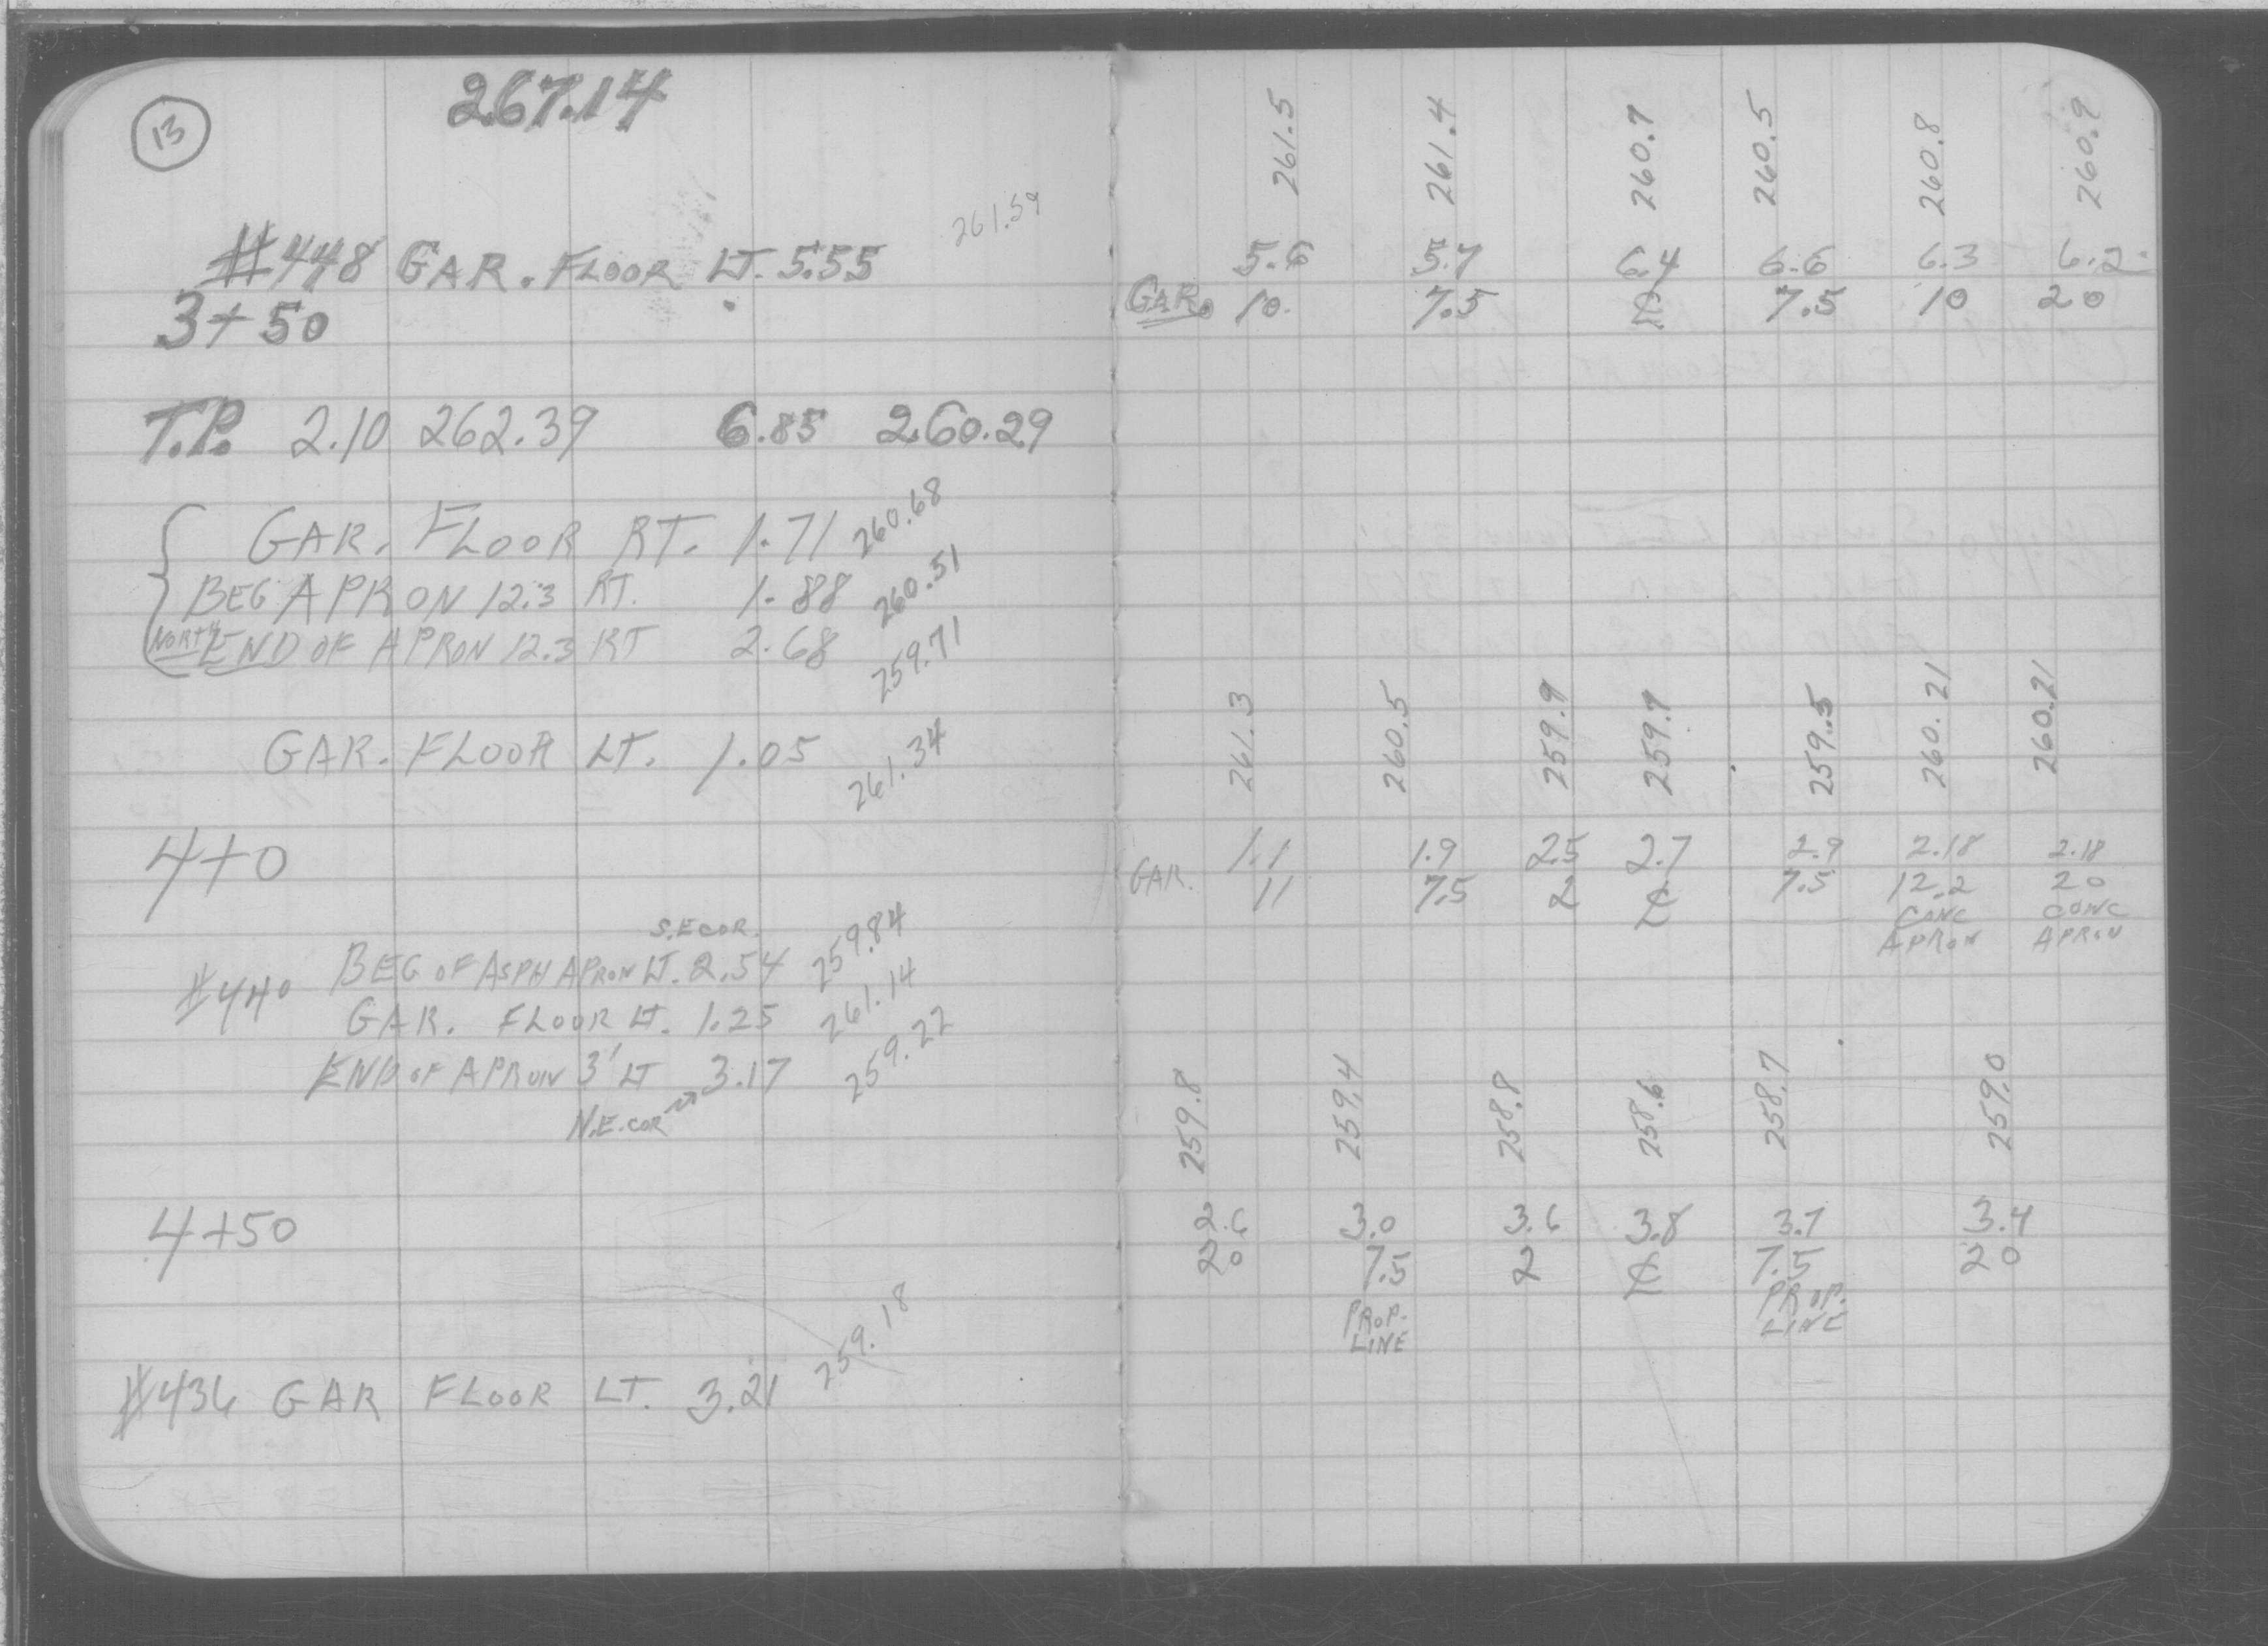 13
267.14
261.59
#448 GAR. FLOOR LT. 5.55
3+50
T.P. 2.10 262.39 6.85 260.29
GAR. FLOOR RT. 1.71 260.68
BEG APRON 12.3 RT. 1.88 260.51
NORTH END OF APRON 12.3 RT 2.68 259.71
GAR. FLOOR LT. 1.05 261.34
4+0
S.E COR.
#440 BEG OF ASPH APRON LT. 2.54 259.84
GAR. FLOOR LT. 1.25 261.14
END OF APRON 3' LT 3.17 259.22
N.E. COR →
4+50
#436 GAR FLOOR LT. 3.21 259.18
261.5 261.4 260.7 260.5 260.8 260.9
5.6 5.7 6.4 6.6 6.3 6.2
GAR. 10 7.5 ℄ 7.5 10 20
261.3 260.5 259.9 259.7 259.5 260.21 260.21
1.1 1.9 2.5 2.7 2.9 2.18 2.18
GAR. 11 7.5 2 ℄ 7.5 12.2 20
CONC CONC
APRON APRON
259.8 259.4 258.8 258.6 258.7 259.0
2.6 3.0 3.6 3.8 3.7 3.4
20 7.5 2 ℄ 7.5 20
PROP. PROP.
LINE LINE